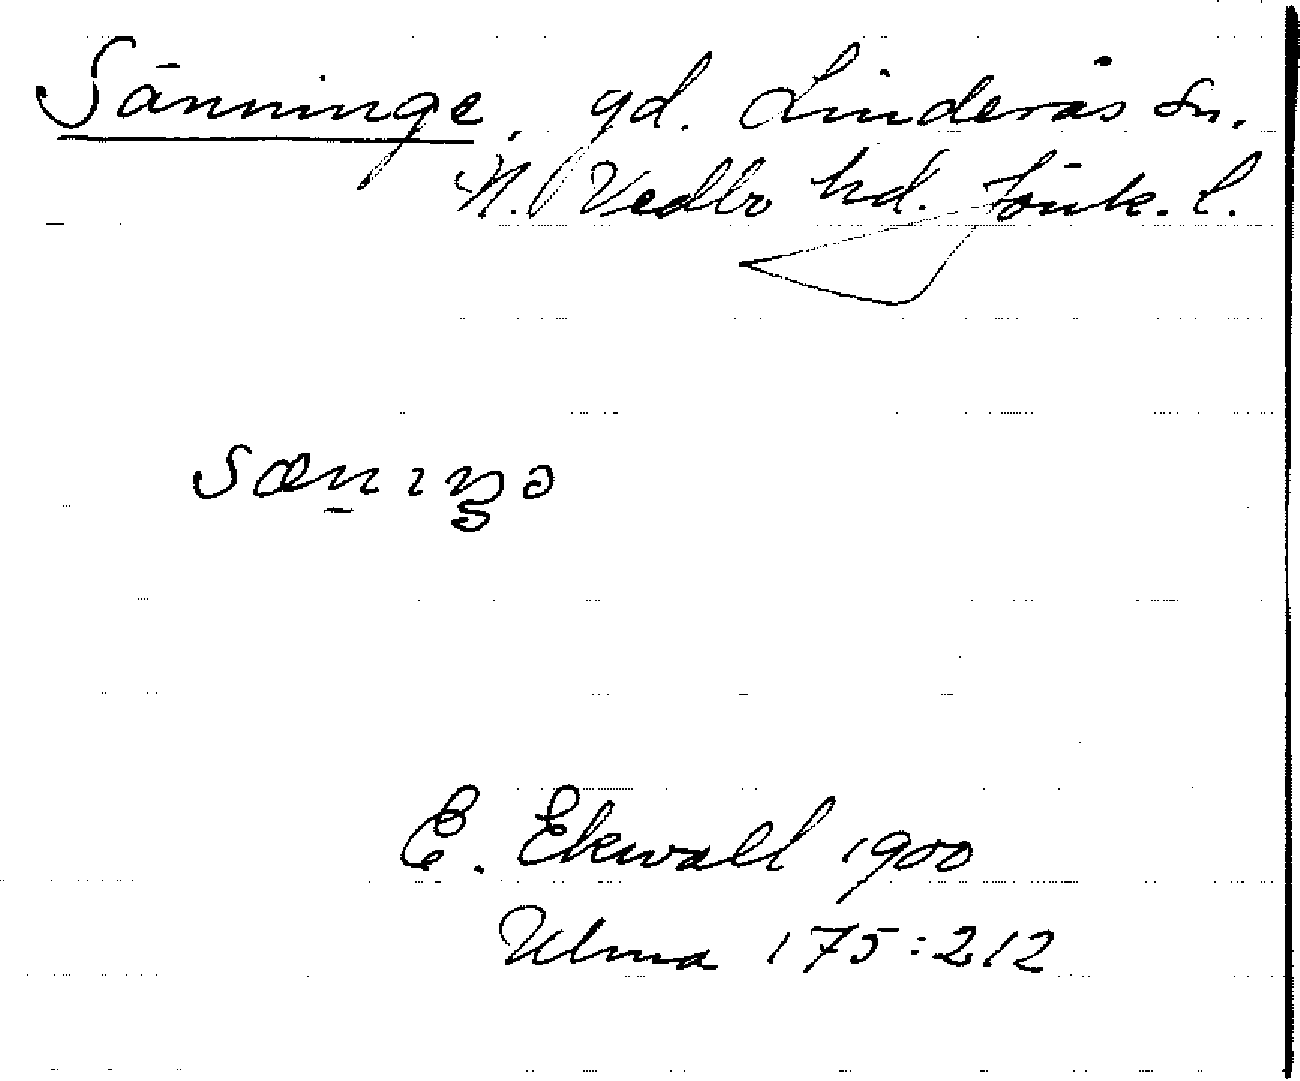 Sänninge, gd. Linderås sn.
N. Vedbo hd. Jönk. l.
sæn̠ıŋə
E. Ekwall 1900
Ulma 175:212